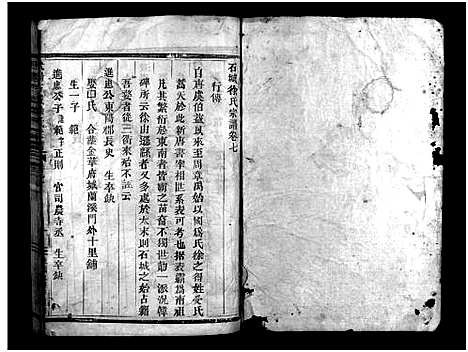 石城徐氏宗譜卷七
行傳
自再虞伯益以來至周章禹始以國為氏徐之得姓受氏
莫大於此新唐書宰相世系表可考也揩表霸為南祖
凡其繁衍於東南者皆霸之苗裔不獨世勣一派況韓
碑所云徐山遷蘇者又多處於太末則石城之始占籍
吾婺者從三衢來殆不誣云
進處公東陽郡長史 生卒缺
娶申氏 合葬金華府城蘭溪門外十里鋪
生一子 範
進處公子 範 字正則 官司農寺丞 生卒缺